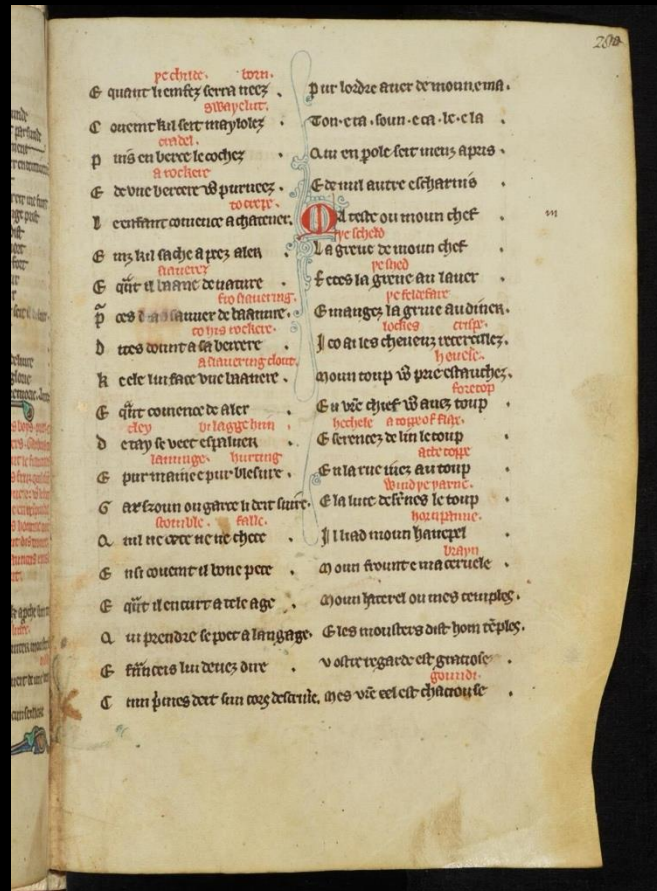 ye childe. born.
E quant li emfez serra neez
swaylut.
C ovemt kil seit maylolez
cradel.
P uis en berce le cochez
a rockere
E de une bercere vous purveez
to crepe.
L e enfant comence a chatener.
E inz kil sache a prez aler
slaverez
E qant il baave de nature
fro slavering.
P ces sauver de baavure.
to his rockere.
D ites dount a sa bercere
a slavering clout.
K e ele lui face une baavere
E qant comence de aler
cley bilagge him
D e tay se veet espaluer
laminge. hurting
E pur maine e pur blesure.
G arszoun ou garce li deit suire.
stomble. falle.
Q uil ne cece ne ne chece
E nsi covemt il bone pece
E qant il encurt a tele age
Q ui prendre se poet a langage.
E franceis lui devez dire
C um primes deit sun cors descrivre.
Pur lordre aver de moun e ma.
Ton e ta. soun e ca. le e la
Qui en pole seit meuz apris
E de nul autre escharnis
Ma teste ou moun chef
ye scheld
La greve de moun chef
ye shed
Fetes la greve au laver
ye feldefare
E mangez la grive au diner.
lockes crispe.
Jco ai les cheveuz recercilez.
houele.
Moun toup vous prie estauchez.
foretop
En vre chief vous avez toup
hechele a toppe of flax.
E serencez de lin le toup
atte toppe
En la rue juez au toup
wind ye yarne.
E la luve desfnes le toup
hornpanne.
Il liad moun hanepel
brayn
Moun frount e ma cervele
Moun haterel ou mes temples.
E les mousters dist hom temples.
Vostre regarde est graciose
goundi.
Mes vre eel est chaciouse